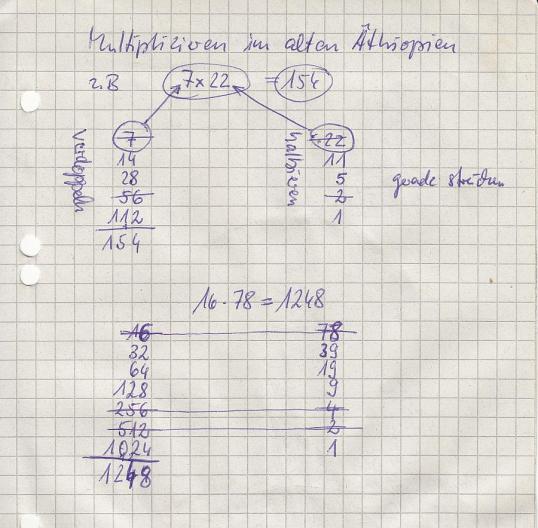 Multiplizieren im alten Äthiopien
z.B 7x22 = 154
verdoppeln halbieren
7 22
14 11
28 5 gerade streichen
56 2
112 1
154
16 · 78 = 1248
16 78
32 39
64 19
128 9
256 4
512 2
1024 1
1248